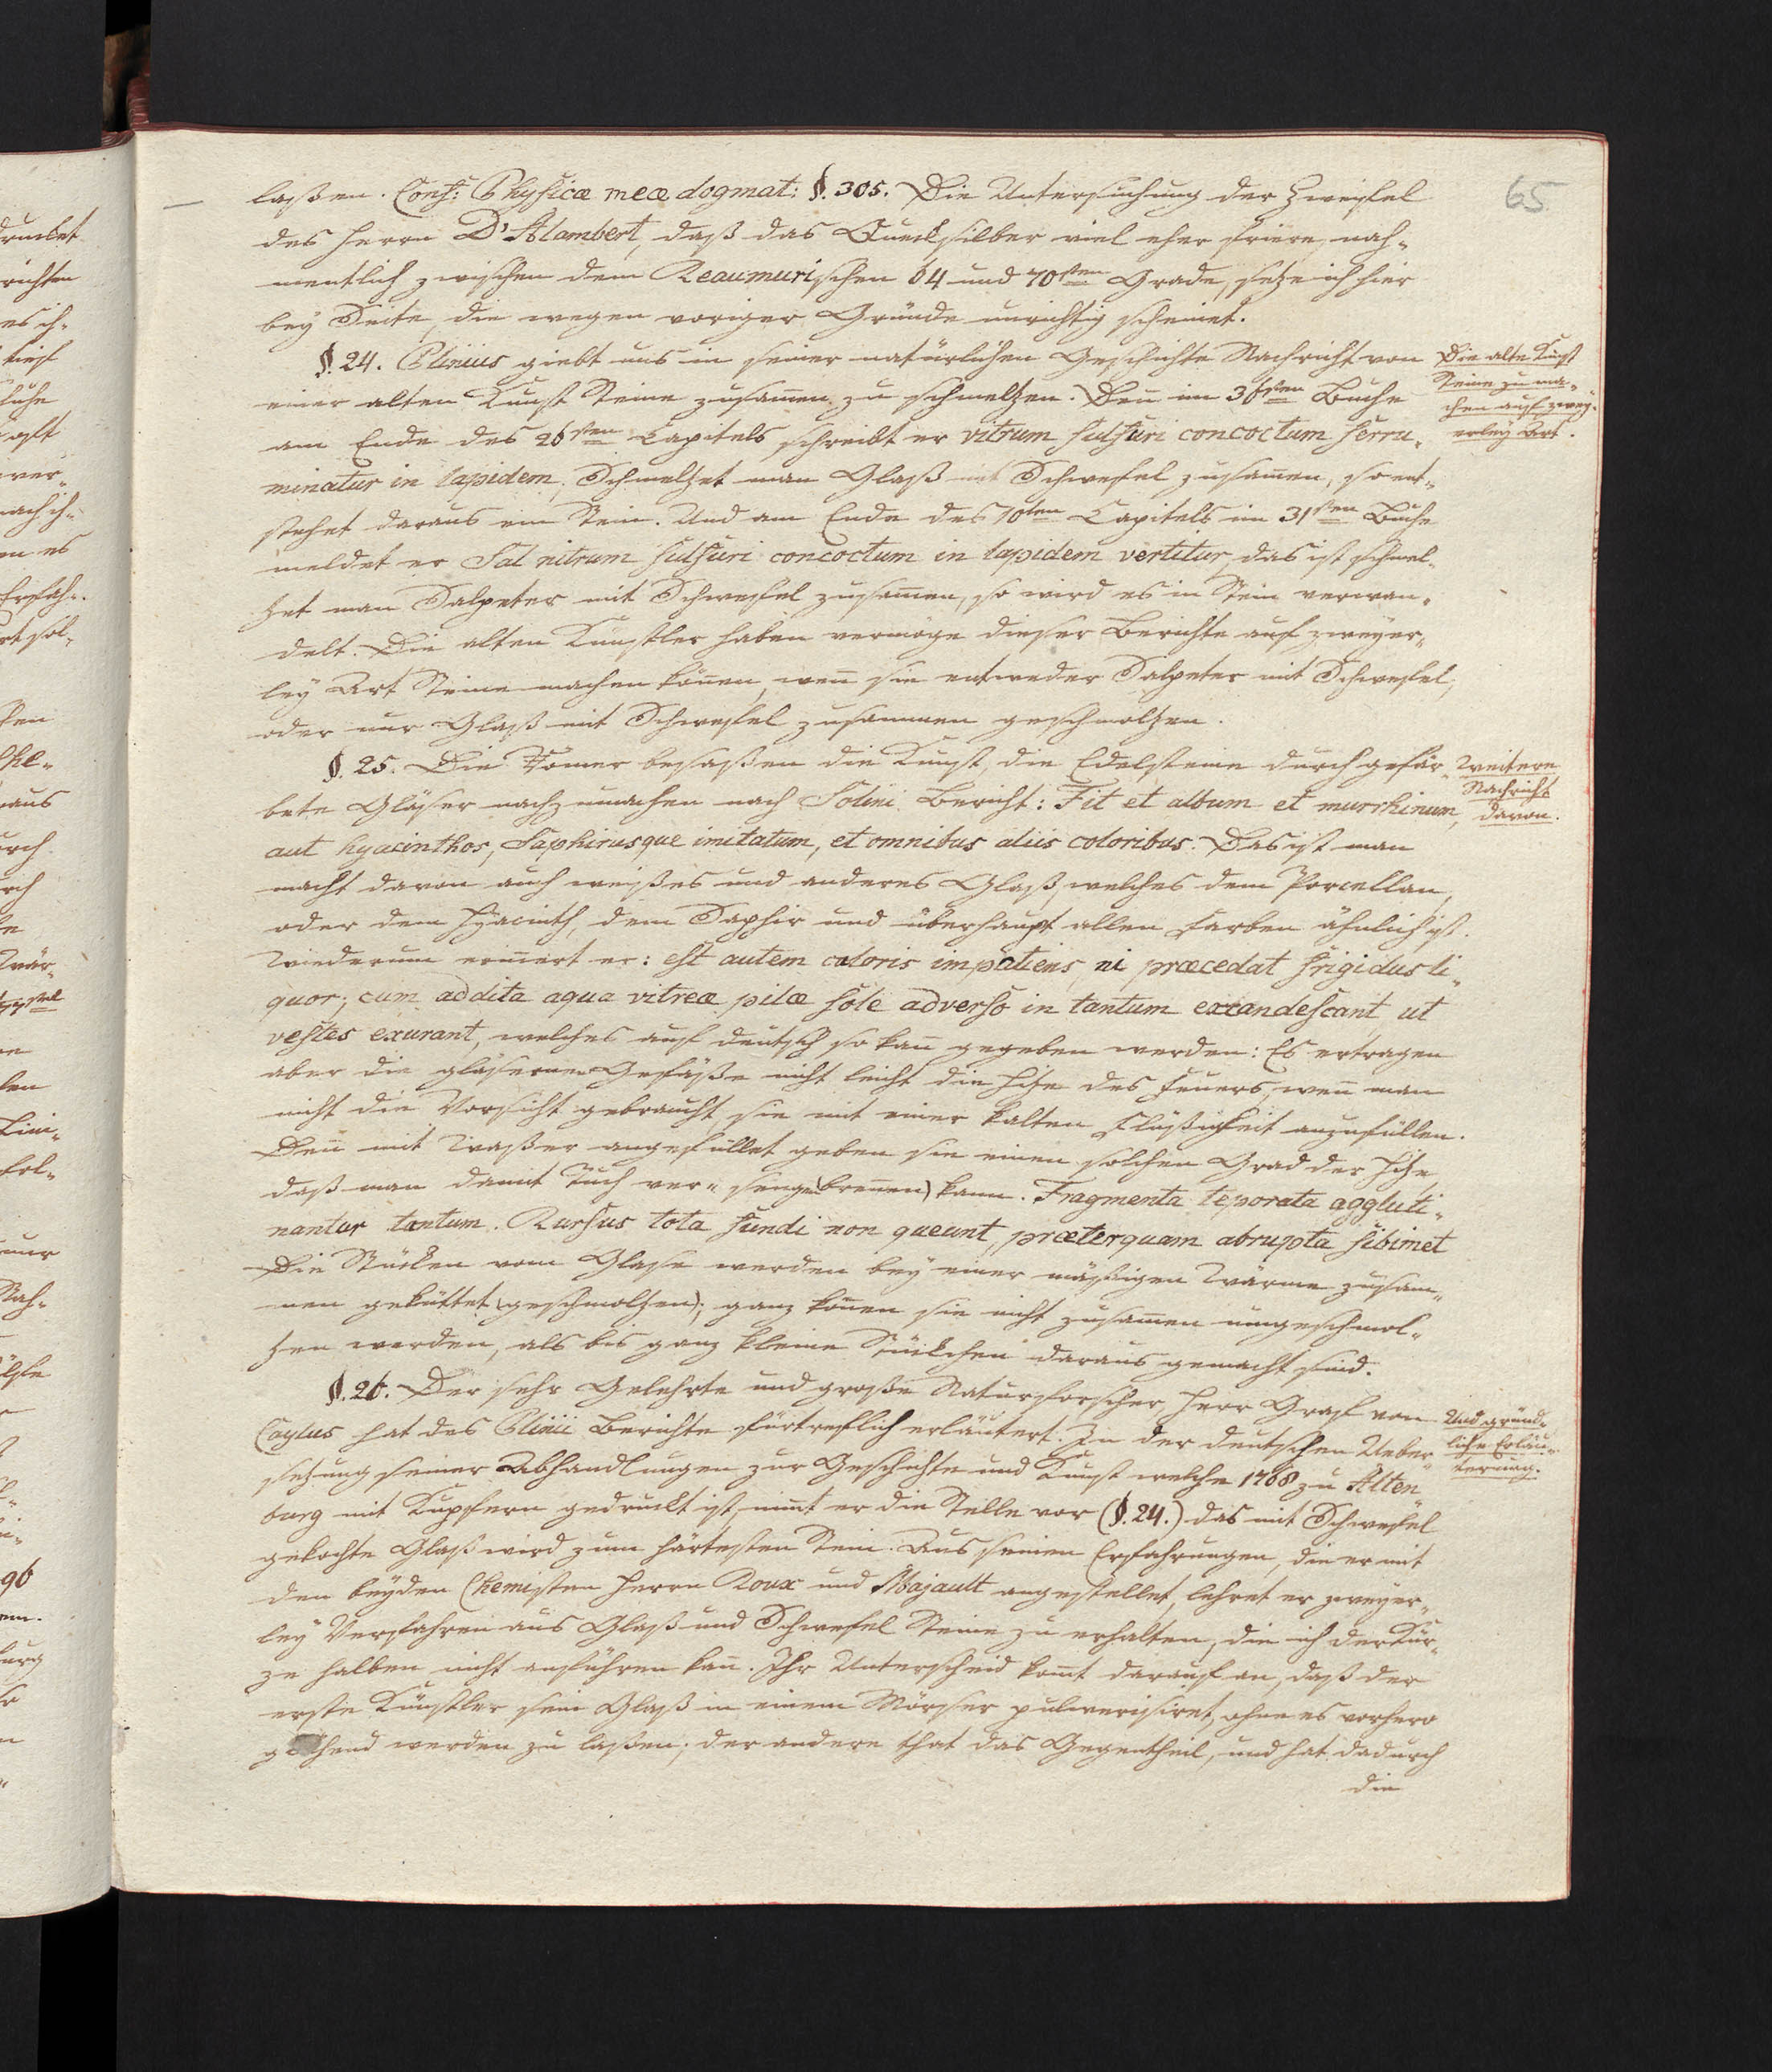 65
laßen. Conf: Physicæ meæ dogmat: §. 305. Die Untersuchung der Zweifel
des Herrn D'Alambert, daß das Quecksilber viel eher friere, nah-
mentlich zwischen dem Reaumurischen 64 und 70sten Grade, setze ich hier
bey Seite, die wegen voriger Gründe unrichtig scheinet.
§. 24. Plinius giebt uns in seiner natürlichen Geschichte Nachricht von
einer alten Kunst Steine zusam̅en zu schmeltzen. Den̅ im 36sten Buche
am Ende des 26sten Capitels schreibt er vitrum sulfuri concoctum ferru-
minatur in lapidem. Schmeltzet man Glaß mit Schwefel zusam̅en, so ent-
stehet daraus ein Stein. Und am Ende des 10ten Capitels im 31sten Buche
meldet er Sal nitrum sulfuri concoctum in lapidem vertitur, das ist schmel-
zet man Salpeter mit Schwefel zusam̅en, so wird es in Stein verwan-
delt. Die alten Künstler haben vermöge dieser Berichte auf zweyer-
ley Art Steine machen kön̅en, wen̅ sie entweder Salpeter mit Schwefel,
oder nur Glaß mit Schwefel zusammen geschmoltzen.
Die alte Kunst
Steine zu ma-
chen auf zwey-
erley Art.
§. 25. Die Römer besaßen die Kunst, die Edelsteine durch gefär-
bete Gläser nachzumachen nach Solini Bericht: Fit et album et murrhinum,
aut hyacinthos, Saphirusque imitatum, et omnibus aliis coloribus. Das ist man
macht davon auch weißes und anderes Glaß, welches dem Porcellan,
oder dem Hyacinth, dem Saphir und überhaupt allen Farben ähnlich ist.
Wiederum erin̅ert er: est autem caloris impatiens, ni præcedat frigidus li-
quor; cum addita aqua vitreæ pilæ sole adverso in tantum excandescant, ut
vestes exurant, welches auf deutsch so kan̅ gegeben werden: Es ertragen
aber die gläsernen Gefäße nicht leicht die Hitze des Feuers, wen̅ man
nicht die Vorsicht gebraucht, sie mit einer kalten Flüßigkeit anzufüllen.
Den̅ mit Waßer angefüllet geben sie einen solchen Grad der Hitze
daß man damit Tuch ver- sengen (bren̅en) kann. Fragmenta teporata aggluti-
nantur tantum. Rursus tota fundi non queunt, præterquam abrupta sibimet
Die Stücken vom Glase werden bey einer mäßigen Wärme zusam-
men geküttet (geschmoltzen); ganz kön̅en sie nicht zusam̅en umgeschmol-
zen werden, als bis ganz kleine Stückchen daraus gemacht sind.
Weitere
Nachricht
davon.
§. 26. Der sehr Gelehrte und große Naturforscher Herr Graf von
Caylus hat des Plinii Berichte fürtreflich erläutert. In der deutschen Ueber-
setzung seiner Abhandlungen zur Geschichte und Kunst welche 1768 zu Alten
burg mit Kupfern gedruckt ist, nim̅t er die Stelle vor (§. 24.) das mit Schwefel
gekochte Glaß wird zum härtesten Stein. Aus seinen Erfahrungen, die er mit
den beyden Chemisten Herrn Roux und Majault angestellet, lehret er zweyer-
ley Verfahren aus Glaß und Schwefel Steine zu erhalten, die ich der Kür-
ze halben nicht anführen kan̅. Ihr Unterscheid kom̅t darauf an, daß der
erste Künstler sein Glaß in einem Mörser pulverisiret, ohne es vorhero
glühend werden zu laßen; der andere that das Gegentheil, und hat dadurch
die
Und gründ-
liche Erläu-
terung.